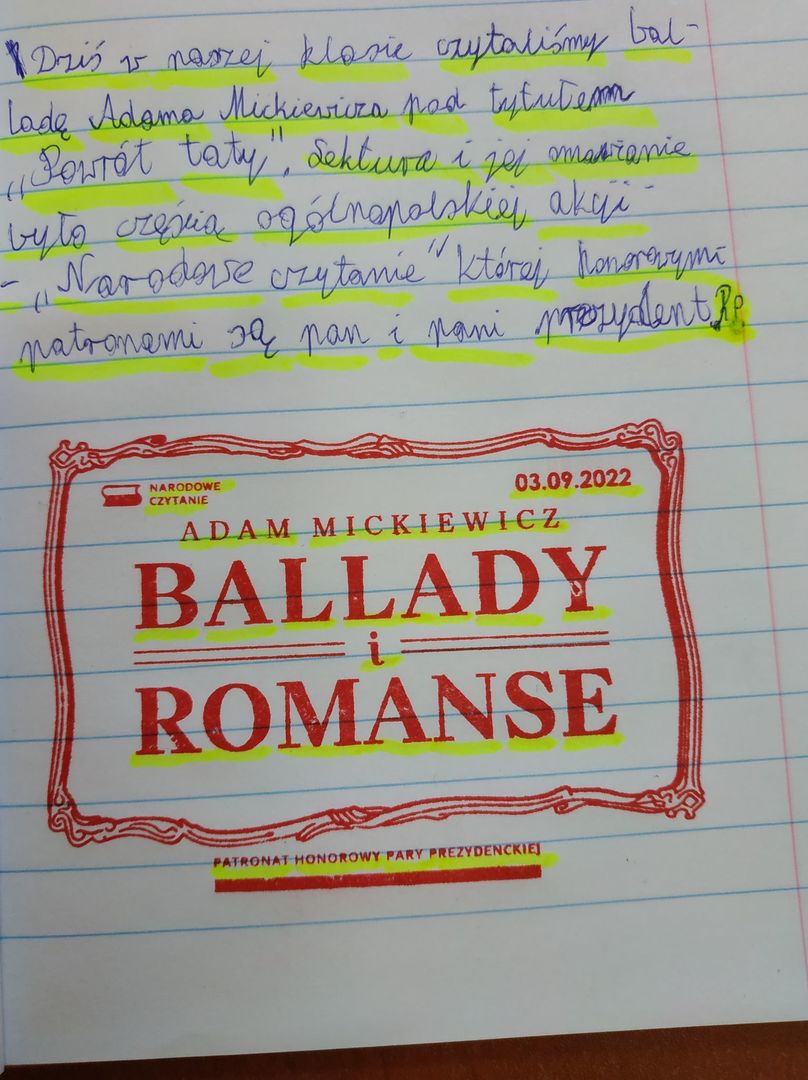 Dziś w naszej klasie czytaliśmy bal-
ladę Adama Mickiewicza pod tytułem
„Powrót taty". Lektura i jej omawianie
było częścią ogólnopolskiej akcji -
- „Narodowe czytanie" której honorowymi
patronami są pan i pani prezydent Rp
NARODOWE
CZYTANIE
03.09.2022
ADAM MICKIEWICZ
BALLADY
i
ROMANSE
PATRONAT HONOROWY PARY PREZYDENCKIEJ